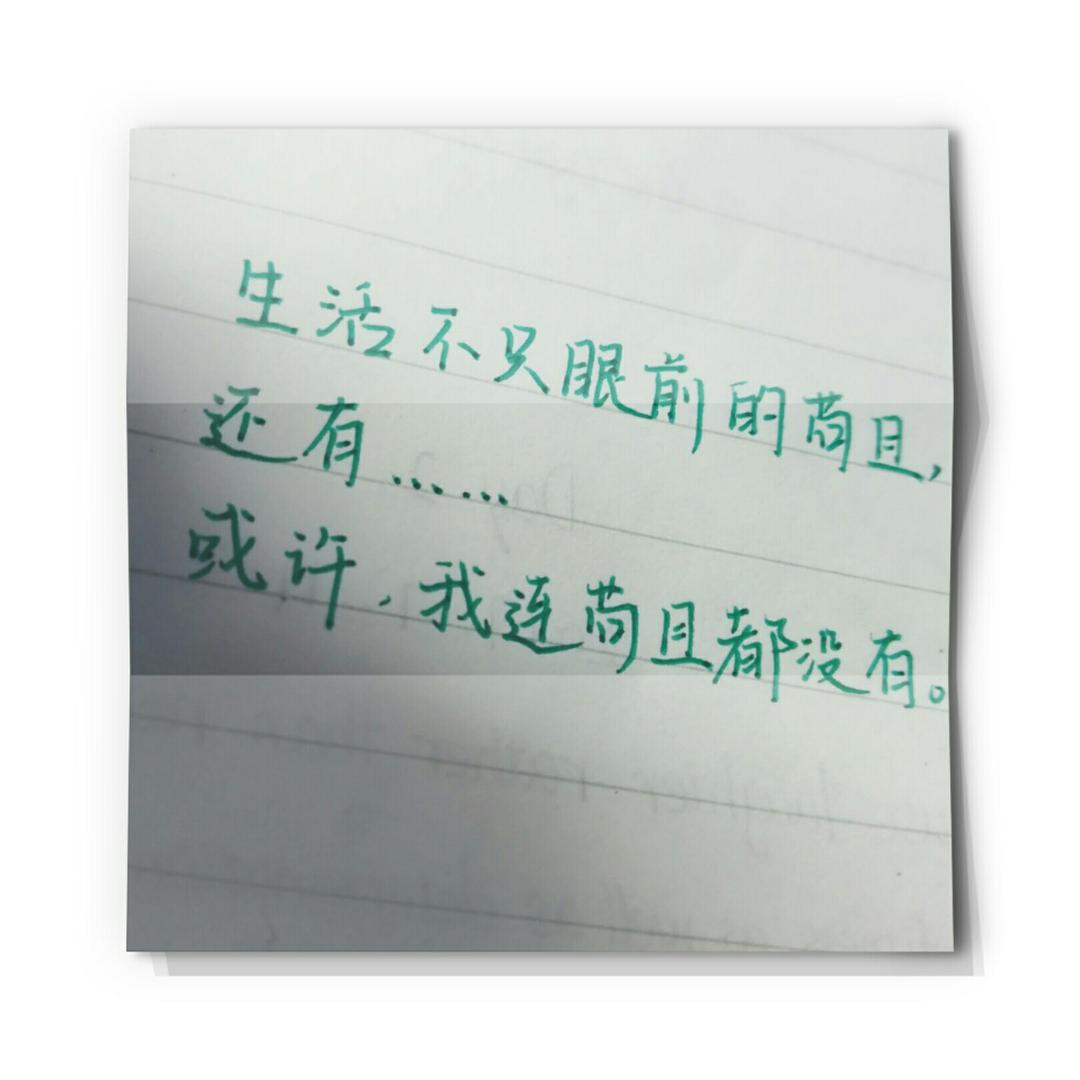 生活不只眼前的苟且,
还有……
或许,我连苟且都没有。